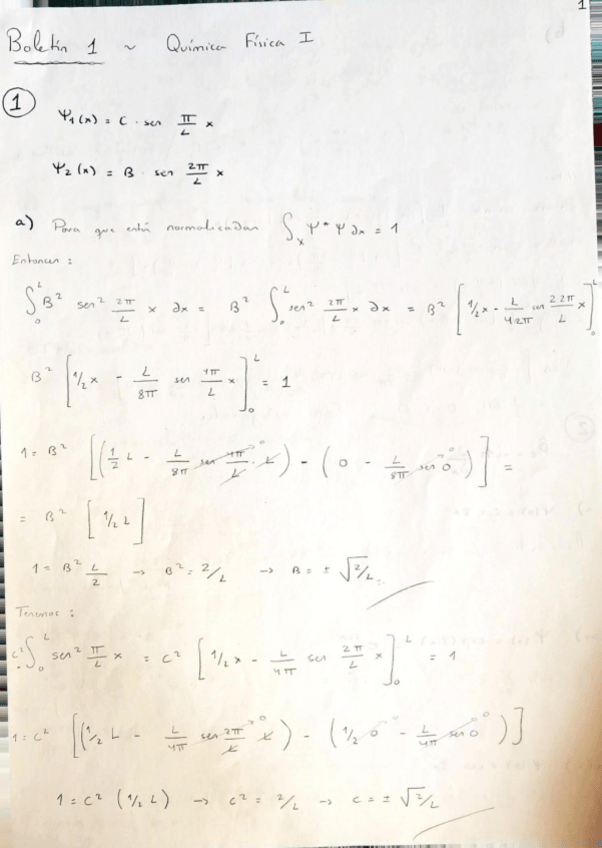 1
Boletín 1 ~ Química Física I
① Ψ₁(x) = C · sen π/L x
Ψ₂(x) = B · sen 2π/L x
a) Para que están normalizadas ∫ₓ Ψ* Ψ ∂x = 1
Entonces :
∫₀ᴸ B² sen² 2π/L x ∂x = B² ∫₀ᴸ sen² 2π/L x ∂x = B² [1/2 x - L/4·2π sen 2·2π/L x]₀ᴸ
B² [1/2 x - L/8π sen 4π/L x]₀ᴸ = 1
1 = B² [(1/2 L - L/8π sen 4π/L · L) - (0 - L/8π sen 0)] =
= B² [1/2 L]
1 = B² L/2 → B² = 2/L → B = ± √2/L
Tenemos :
C² ∫₀ᴸ sen² π/L x = C² [1/2 x - L/4π sen 2π/L x]₀ᴸ = 1
1 = C² [(1/2 L - L/4π sen 2π/L L) - (1/2 0 - L/4π sen 0)]
1 = C² (1/2 L) → C² = 2/L → C = ± √2/L